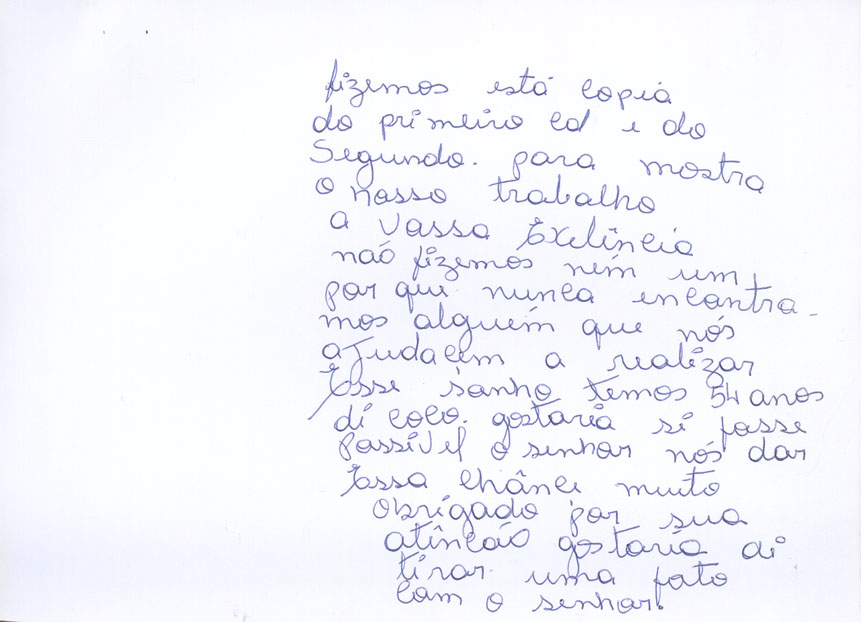 fizemos está copia
do primeiro cd e do
Segundo. para mostra
o nosso trabalho
a Vossa Exelência
naõ fizemos nem um
por que nunca encontra-
mos alguém que nós
ajudacem a realizar
Esse sonho temos 54 anos
di coco. gostaria si fosse
possível o senhor nós dar
Essa chânci muito
obrigado por sua
atêncaõ gostaria di
tirar uma foto
com o senhor.